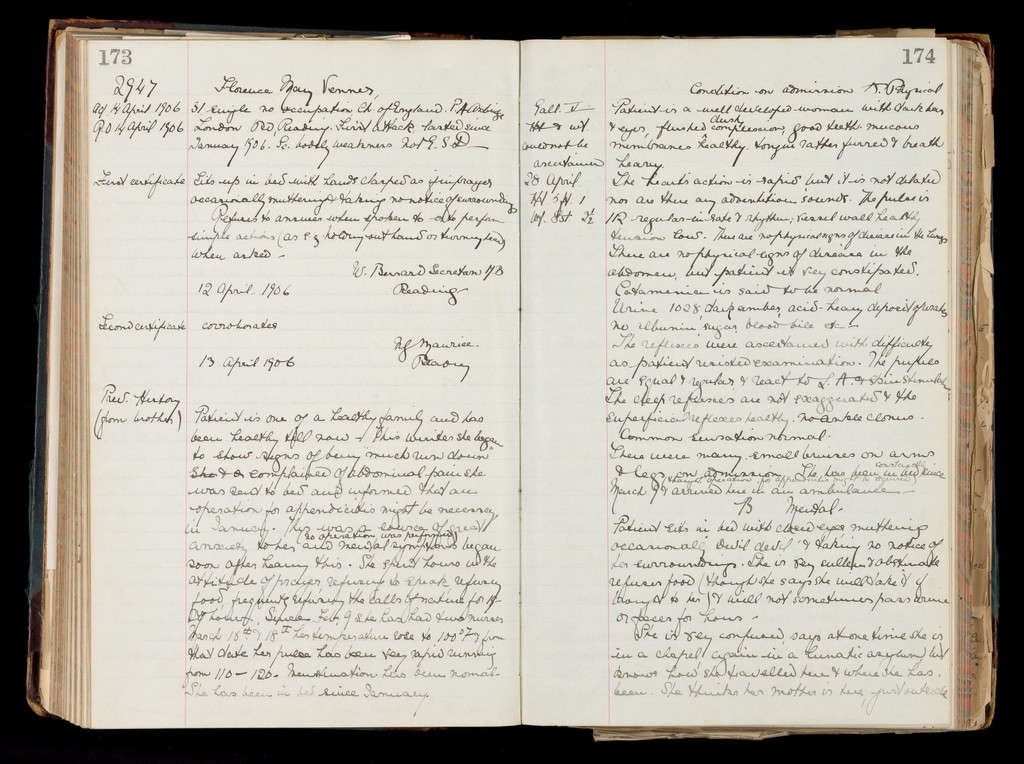 173
2947 Florence May Venner,
Ad 14 April 1906 31 single no occupation Ch. of England.
R.O 14 April 1906 London Rd, Reading. First attack lasted since
January 1906. Sc. bodily weakness Not E. S or D
First certificate Sits up in bed with hands clasped as if in prayer
occasionally muttering & taking no notice of surroundings
Refuses to answer when spoken to or to perform
simple actions (as e.g holding out hand or turning head)
when asked -
W. Bernard Secretan MB
12 April 1906 Reading
Second certificate corroborates
Maurice.
13 April 1906 Reading
Prev. History
(from mother) Patient is one of a healthy family and has
been healthy till now. This winter she began
to show signs of being "much run down"
She complained of abdominal pain she
was sent to bed and informed that an
operation for appendicitis might be necessary
in January. This was a source of great
(no operation was performed)
anxiety to her and mental symptoms began
soon after hearing this. She spent hours in the
attitude of prayer refusing to speak refusing
food frequently refusing the calls of nature for
hours. Since Feb 9 she has had two nurses
March 18th her temperature rose to 100° & from
that date her pulse has been very rapid running
from 110 - 120. Menstruation has been normal.
She has been in bed since January.
174
Condition on admission A. Physical
Patient is a well developed woman with dark hair
& eyes, flushed dusky complexion, good teeth mucous
membranes healthy. tongue rather furred & breath
heavy.
could not be
ascertained
28 April
Ht 5 ft. 1
Wt. 8st 2½
The heart's action is rapid but it is not dilated
nor are there any adventitious sounds. The pulse is
112 regular in rate & rhythm; vessel wall healthy
tension low. There are no physical signs of disease in the lungs
There are no physical signs of disease in the
abdomen, but patient is very constipated.
Catamenia is said to be normal
Urine 1028, dark amber, acid heavy deposit of urates
no albumin, sugar, blood bile etc -
The reflexes were ascertained with difficulty
as patient resisted examinations. The pupils
are equal & regular & react to L. A. & skin stimulation
The deep reflexes are not exaggerated & the
superficial reflexes healthy. no ankle clonus.
Common sensation normal.
There were many small bruises on arms
& legs on admission. She has been constantly in bed since
(thought operation for appendicitis might be required)
March 9 & arrived here in an ambulance.
B Mental.
Patient sits in bed with closed eyes muttering
occasionally "devil devil" & taking no notice of
her surroundings. She is very sullen & obstinate
refuses food (though she says she will take it if
brought to her) & will not sometimes pass urine
or faeces for hours -
She is very confused says at one time she is
in a chapel again in a lunatic asylum, but
knows how she travelled here & where she has
been. She thinks her mother is here, just outside